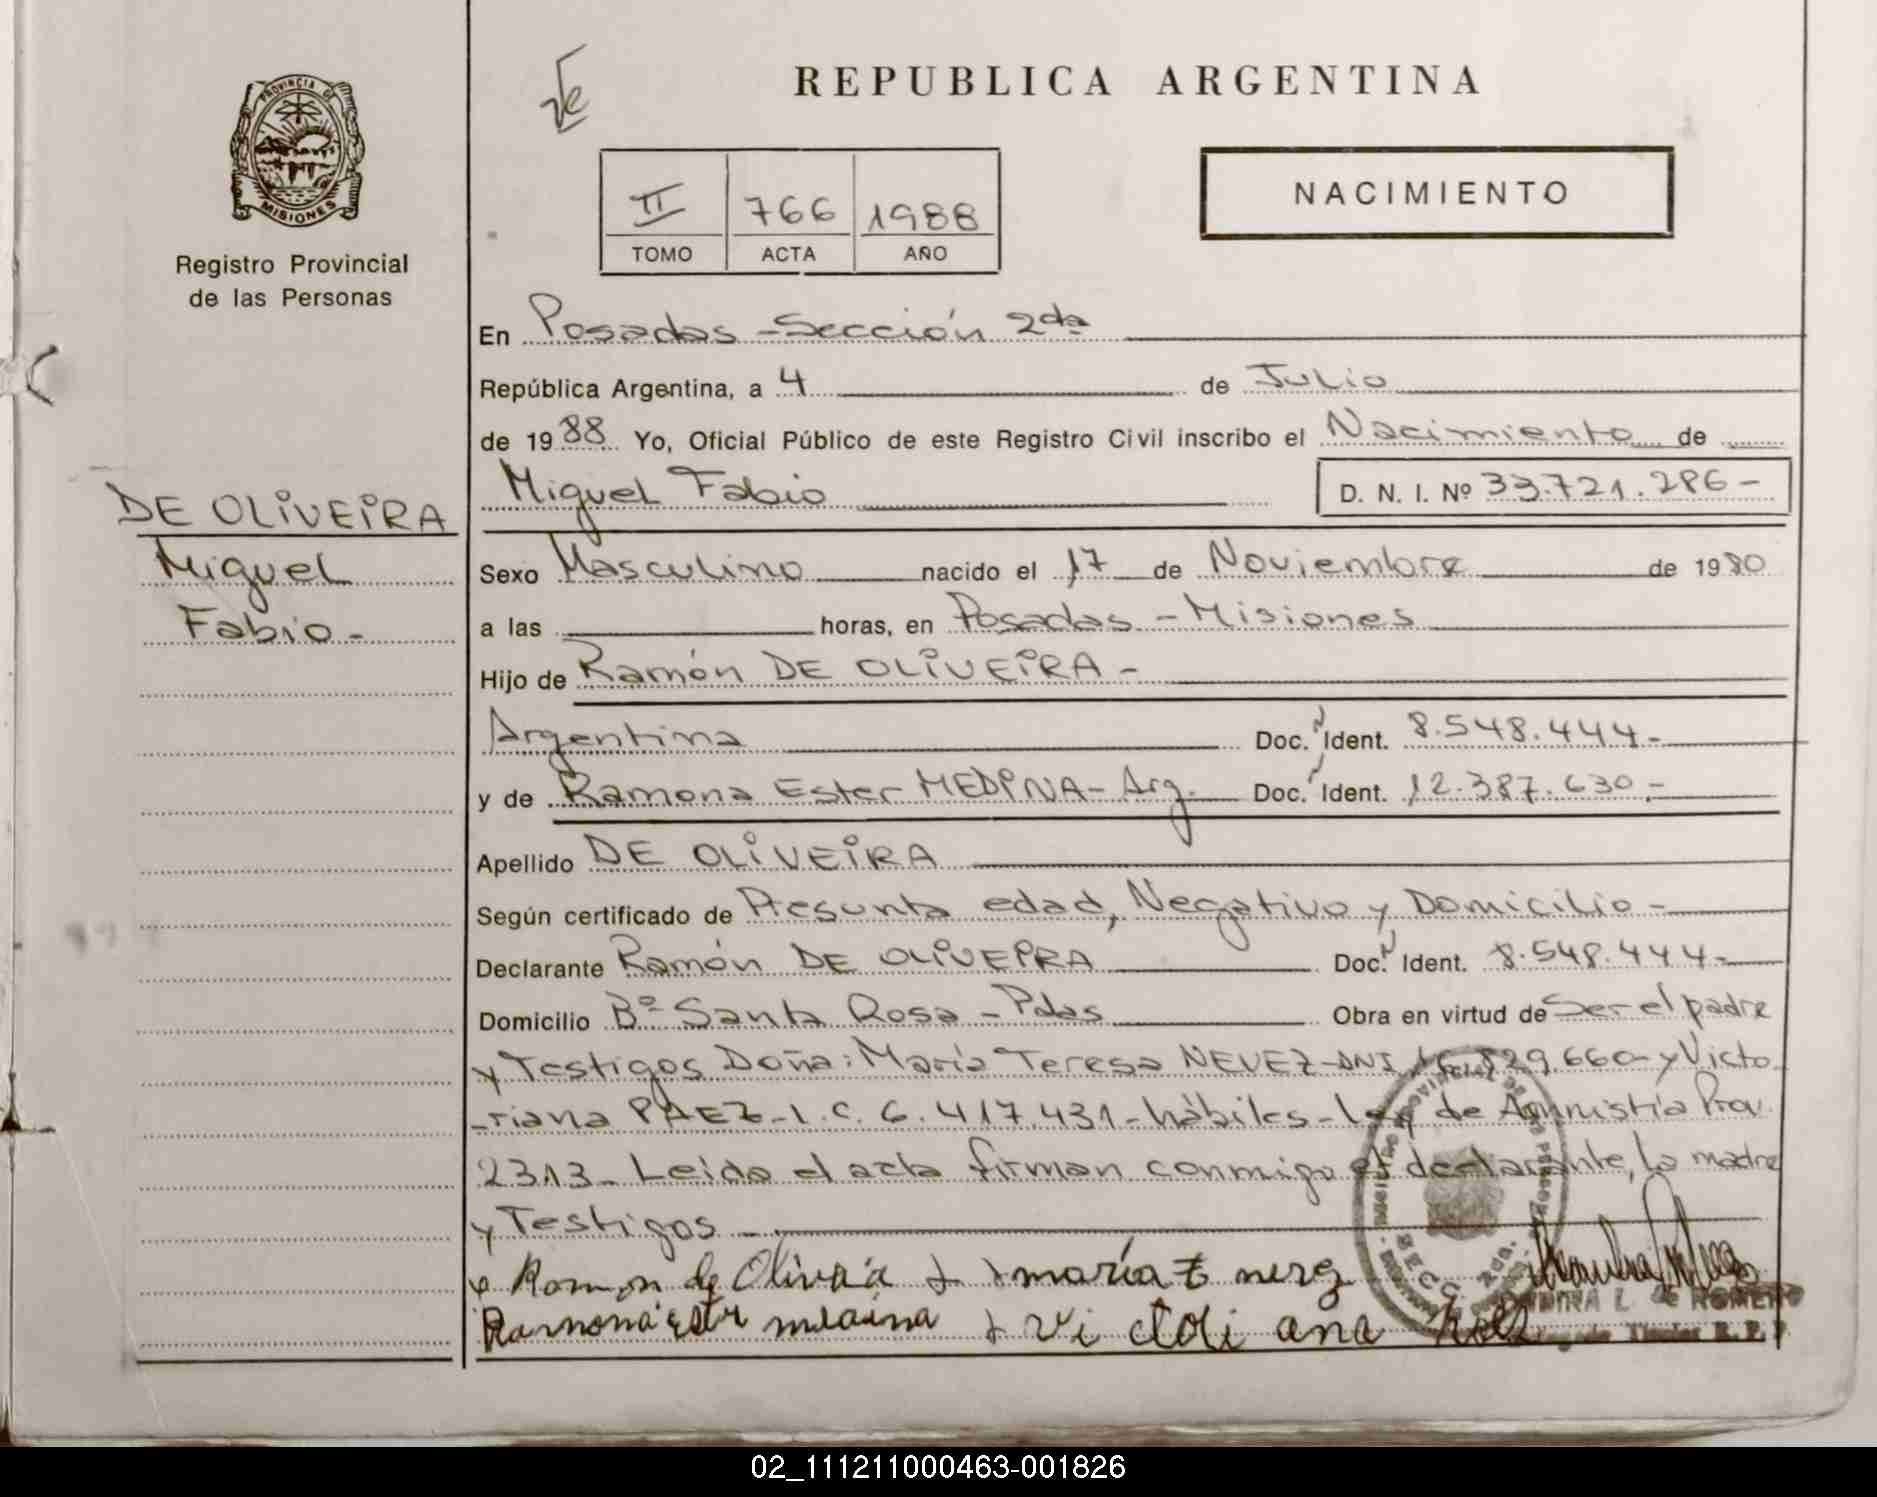 REPUBLICA ARGENTINA
PROVINCIA DE
MISIONES
Registro Provincial
de las Personas
II 766 1988
TOMO ACTA AÑO
NACIMIENTO
En Posadas - Sección 2da
República Argentina, a 4 de Julio
de 1988 Yo, Oficial Público de este Registro Civil inscribo el Nacimiento de
Miguel Fabio D. N. I. Nº 33.721.286-
DE OLIVEIRA
Miguel
Fabio -
Sexo Masculino nacido el 17 de Noviembre de 1980
a las horas, en Posadas - Misiones
Hijo de Ramón DE OLIVEIRA -
Argentina Doc. Ident. 8.548.444-
y de Ramona Ester MEDINA - Arg. Doc. Ident. 12.387.630.-
Apellido DE OLIVEIRA
Según certificado de Presunta edad, Negativo y Domicilio -
Declarante Ramón DE OLIVEIRA Doc. Ident. 8.548.444-
Domicilio Bº Santa Rosa - Pdas Obra en virtud de Ser el padre
y Testigos Doña: María Teresa NEVEZ - DNI 829.660 y Victo
-riana PAEZ - L.C. 6.417.431 - hábiles - Ley de Amnistía Prov.
2313 - Leída el acta firman conmigo el declarante, la madre
y Testigos
Ramon de Oliveira María
Ramona Ester medina
L. de ROMERO
02_111211000463-001826